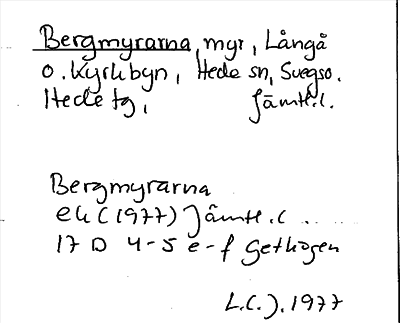 Bergmyrarna, myr, Långå
o. Kyrkbyn, Hede sn, Svegso.
Hede tg, Jämtl.l.
Bergmyrarna
ek (1977) Jämtl.l
17 D 4-5 e-f Gethogen
L.C.J. 1977